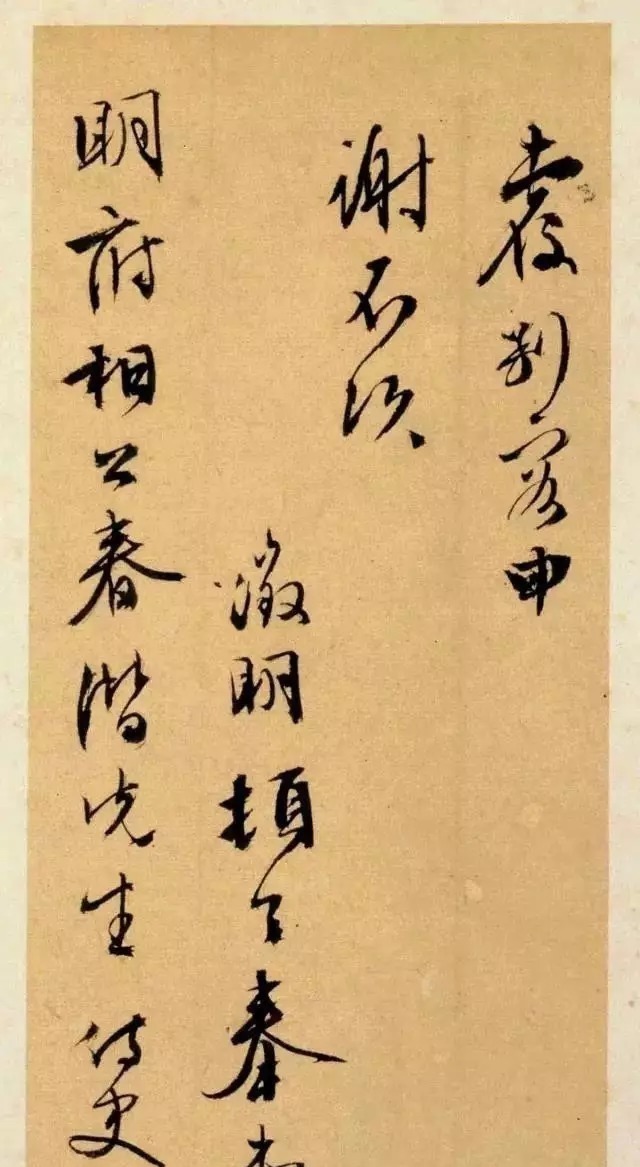 裁制容申
谢不次
徵明頓首奉
明府相公春潜先生侍史